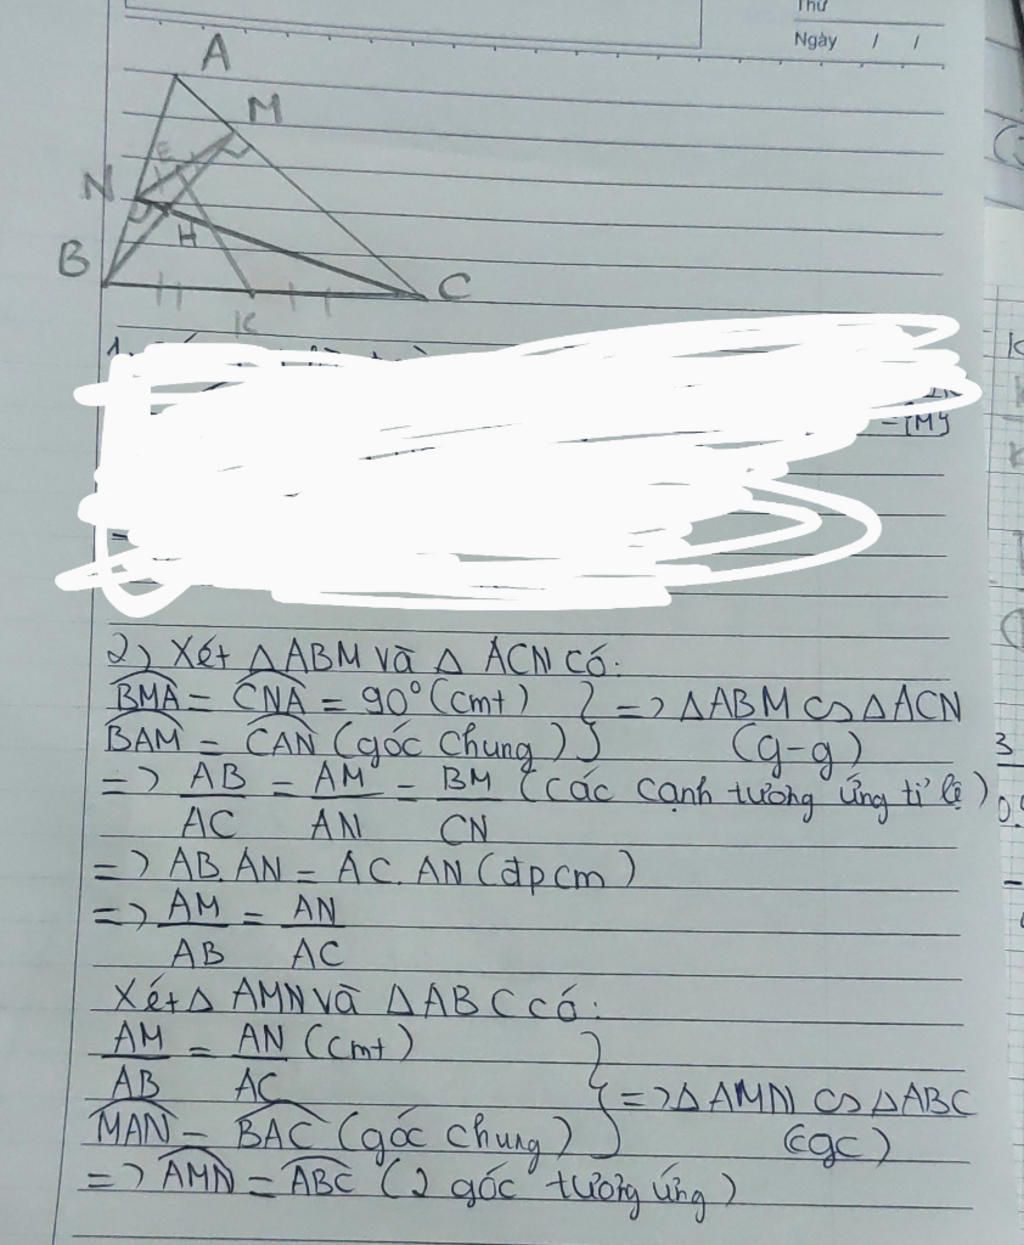 Thứ
Ngày / /
A
M
E
N
H
B
C
K
1.
2) Xét △ABM và △ ACN có:
BMA = CNA = 90° (cmt)
BAM = CAN (góc chung)
=> △ABM ∽ △ACN
(g-g)
=> AB/AC = AM/AN = BM/CN (các cạnh tương ứng tỉ lệ)
=> AB.AN = AC.AN (đpcm)
=> AM/AB = AN/AC
Xét △ AMN và △ABC có:
AM/AB = AN/AC (cmt)
MAN = BAC (góc chung)
=> △AMN ∽ △ABC
(cgc)
=> AMN = ABC (2 góc tương ứng)